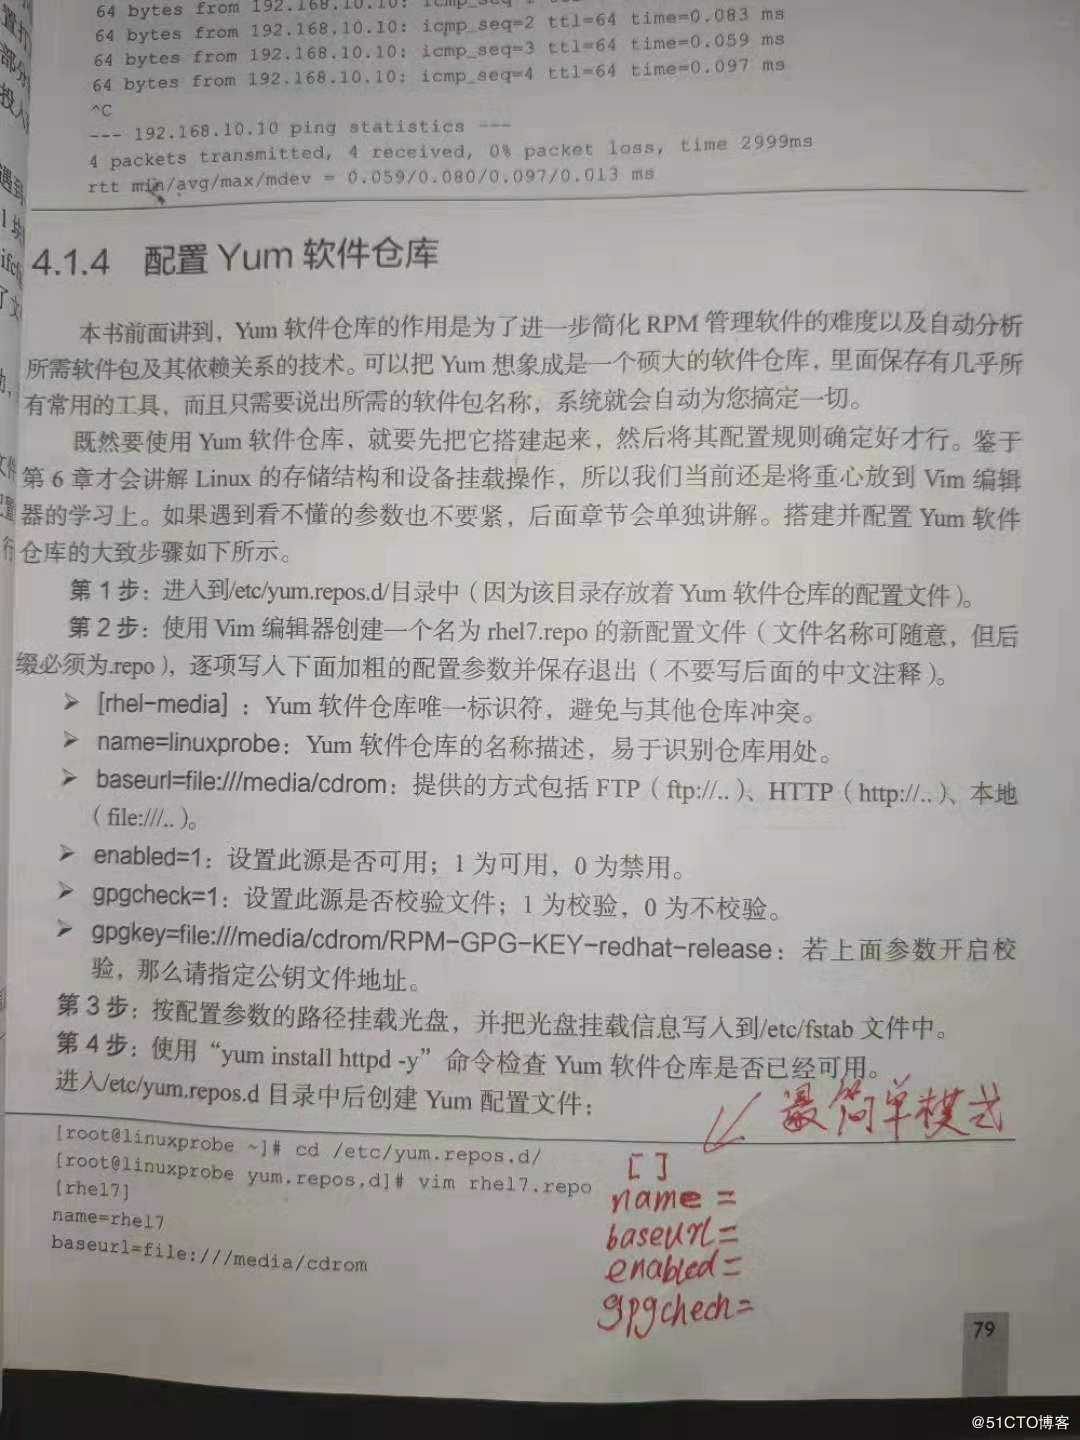 64 bytes from 192.168.10.10: icmp_seq=
64 bytes from 192.168.10.10: icmp_seq=2 ttl=64 time=0.083 ms
64 bytes from 192.168.10.10: icmp_seq=3 ttl=64 time=0.059 ms
64 bytes from 192.168.10.10: icmp_seq=4 ttl=64 time=0.097 ms
^C
--- 192.168.10.10 ping statistics ---
4 packets transmitted, 4 received, 0% packet loss, time 2999ms
rtt min/avg/max/mdev = 0.059/0.080/0.097/0.013 ms
4.1.4 配置 Yum 软件仓库
本书前面讲到，Yum 软件仓库的作用是为了进一步简化 RPM 管理软件的难度以及自动分析
所需软件包及其依赖关系的技术。可以把 Yum 想象成是一个硕大的软件仓库，里面保存有几乎所
有常用的工具，而且只需要说出所需的软件包名称，系统就会自动为您搞定一切。
既然要使用 Yum 软件仓库，就要先把它搭建起来，然后将其配置规则确定好才行。鉴于
第 6 章才会讲解 Linux 的存储结构和设备挂载操作，所以我们当前还是将重心放到 Vim 编辑
器的学习上。如果遇到看不懂的参数也不要紧，后面章节会单独讲解。搭建并配置 Yum 软件
仓库的大致步骤如下所示。
第 1 步：进入到/etc/yum.repos.d/目录中（因为该目录存放着 Yum 软件仓库的配置文件）。
第 2 步：使用 Vim 编辑器创建一个名为 rhel7.repo 的新配置文件（文件名称可随意，但后
缀必须为.repo），逐项写入下面加粗的配置参数并保存退出（不要写后面的中文注释）。
➢ [rhel-media] ：Yum 软件仓库唯一标识符，避免与其他仓库冲突。
➢ name=linuxprobe：Yum 软件仓库的名称描述，易于识别仓库用处。
➢ baseurl=file:///media/cdrom：提供的方式包括 FTP（ftp://..）、HTTP（http://..）、本地
（file:///..）。
➢ enabled=1：设置此源是否可用；1 为可用，0 为禁用。
➢ gpgcheck=1：设置此源是否校验文件；1 为校验，0 为不校验。
➢ gpgkey=file:///media/cdrom/RPM-GPG-KEY-redhat-release：若上面参数开启校
验，那么请指定公钥文件地址。
第 3 步：按配置参数的路径挂载光盘，并把光盘挂载信息写入到/etc/fstab 文件中。
第 4 步：使用“yum install httpd -y”命令检查 Yum 软件仓库是否已经可用。
进入/etc/yum.repos.d 目录中后创建 Yum 配置文件：
最简单模式
[root@linuxprobe ~]# cd /etc/yum.repos.d/
[root@linuxprobe yum.repos.d]# vim rhel7.repo
[rhel7]
name=rhel7
baseurl=file:///media/cdrom
[ ]
name =
baseurl=
enabled=
gpgchech=
79
@51CTO博客